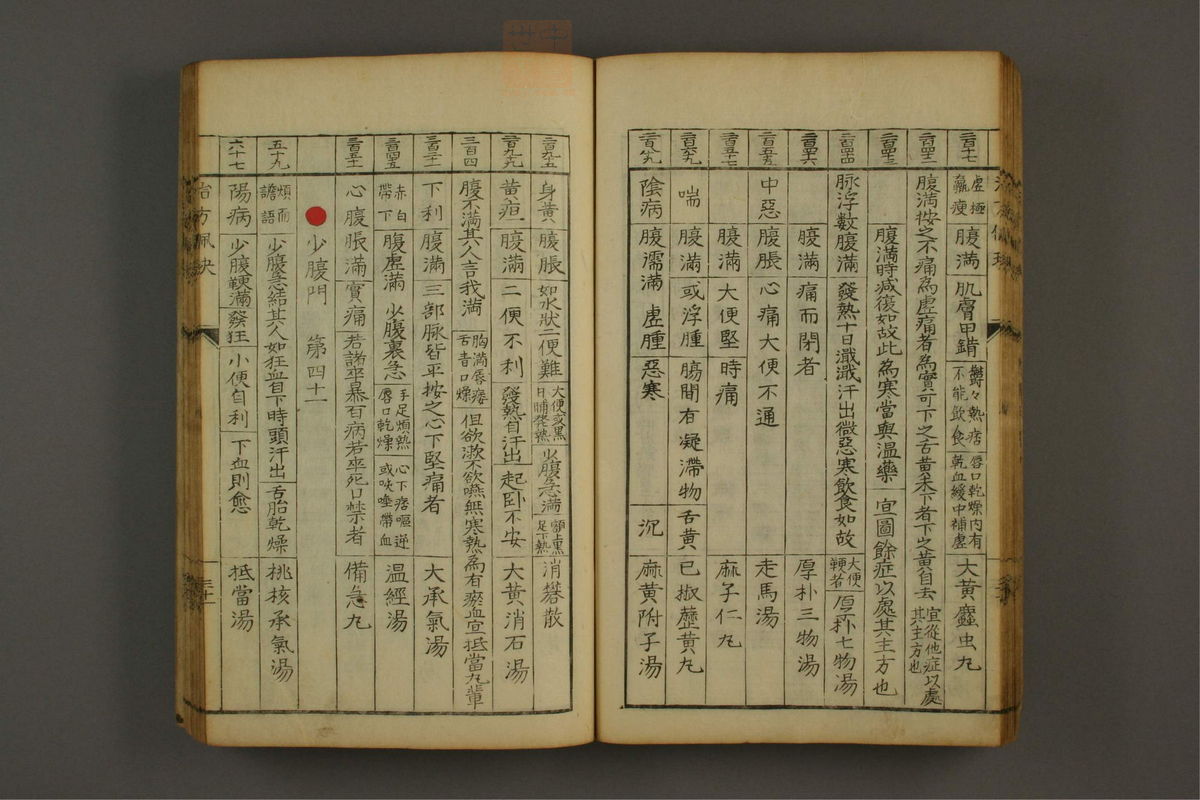 二百十七 虚極羸瘦 腹滿 肌膚甲錯 鬱々熱痞不能飲食 唇口乾燥内有乾血緩中補虚 大黃䗪虫丸
二百四十二 腹滿按之不痛為虚痛者為實可下之舌黃未下者下之黃自去 宜從他症以處其主方也
二百四十三 腹滿時减復如故此為寒當與温藥 宜圖餘症以處其主方也
二百四十四 脉浮數腹滿 發熱十日濈濈汗出微惡寒飲食如故 大便鞕者 厚朴七物湯
二百四十六 腹滿 痛而閉者 厚朴三物湯
二百五十五 中惡 腹脹 心痛大便不通 走馬湯
二百五十七 腹滿 大便堅 時痛 麻子仁丸
二百六十九 喘 腹滿 或浮腫 腸間有凝滯物 舌黃 已椒藶黃丸
二百八十九 陰病 腹濡滿 虚腫 惡寒 沉 麻黃附子湯
二百九十五 身黃 腹脹 如水狀二便難 大便或黒日晡発熱 少腹急滿 額上黒足下熱 消礬散
二百九十九 黃疸 腹滿 二便不利 發熱自汗出 起卧不安 大黃消石湯
三百四 腹不滿其人言我滿 胸滿唇痿舌青口燥 但欲漱不欲嚥無寒熱為有瘀血宣抵當丸輩
三百二十一 下利 腹滿 三部脉皆平按之心下堅痛者 大承氣湯
三百四十五 赤白帶下 腹虚滿 少腹裏急 手足煩熱唇口乾燥 心下痞嘔逆或吷唾帶血 温經湯
三百五十二 心腹脹滿 實痛 若諸卒暴百病若卒死口禁者 備急丸
少腹門 第四十一
五十九 煩而譫語 少腹急結其人如狂血自下時頭汗出 舌胎乾燥 桃核承氣湯
六十七 陽病 少腹鞕滿 發狂 小便自利 下血則愈 抵當湯
治方佩決
三十一